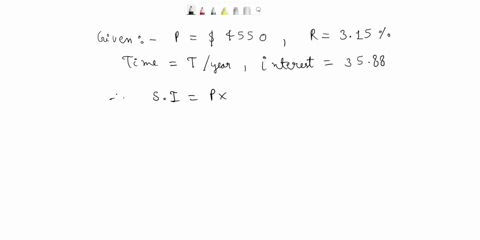 Given :- P = $ 4550 , R = 3.15 %
Time = T/year , interest = 35.88
∴ S.I = P×